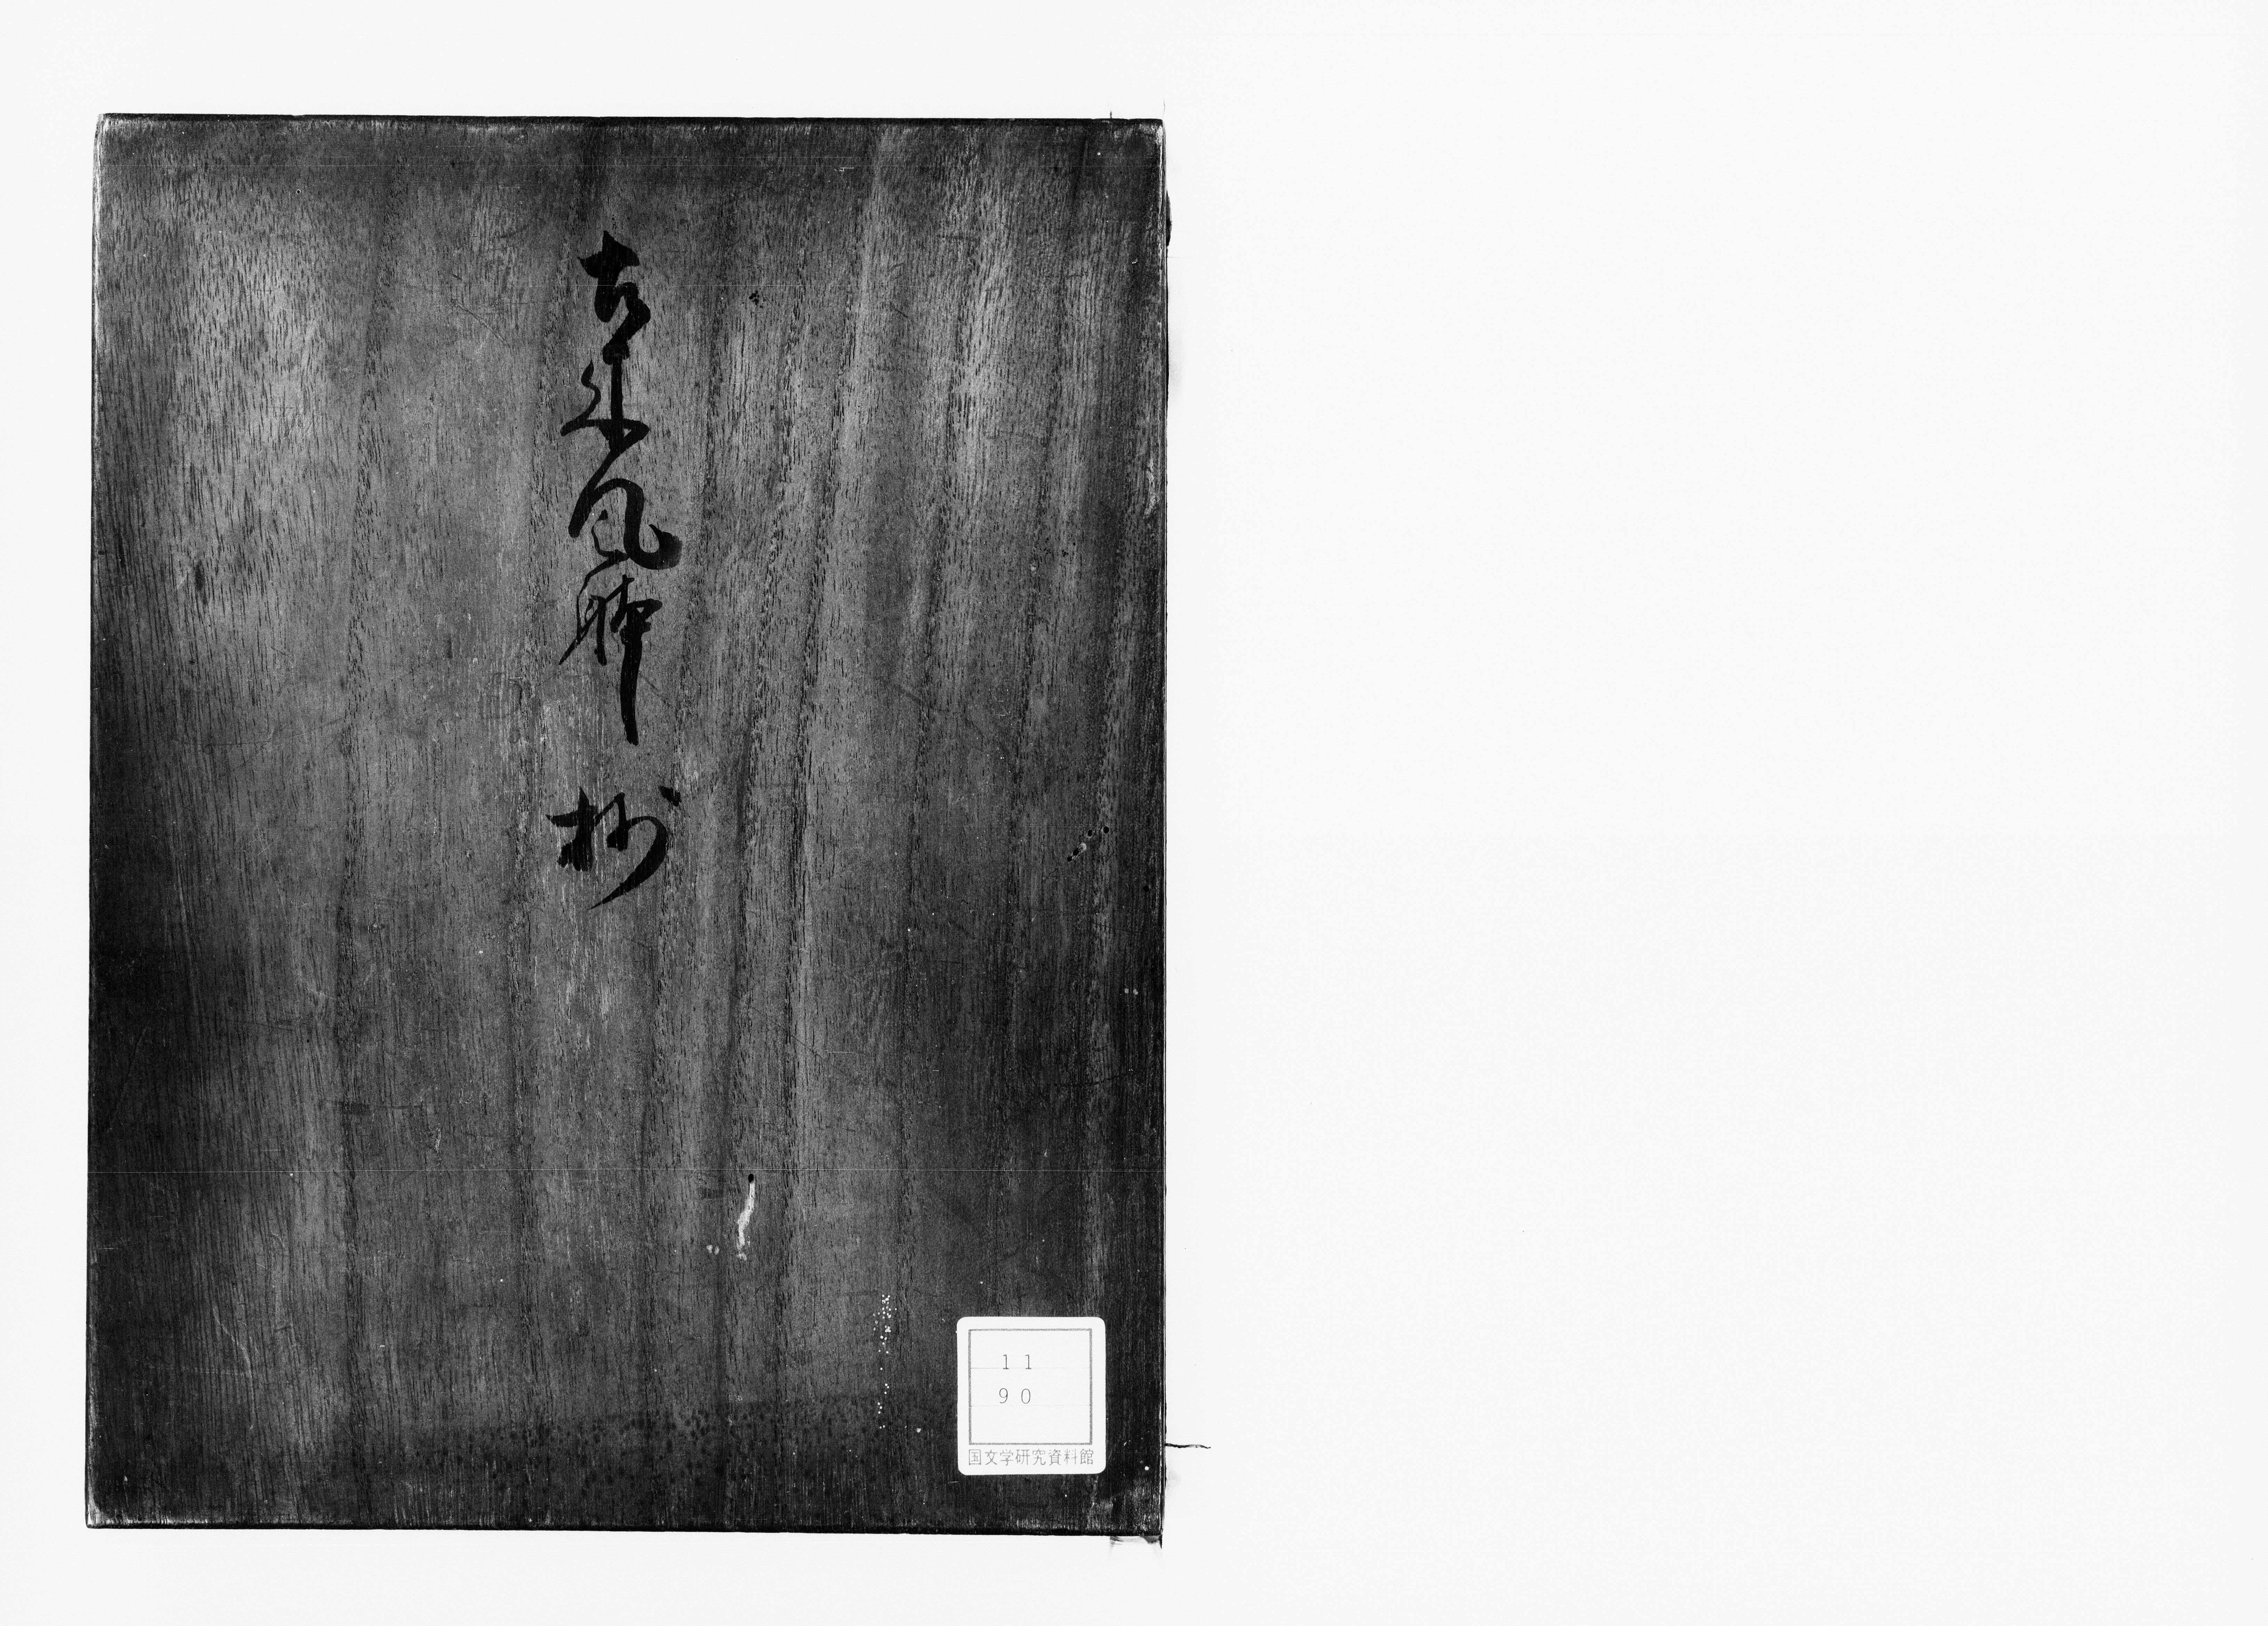 古来風躰抄
11
90
国文学研究資料館